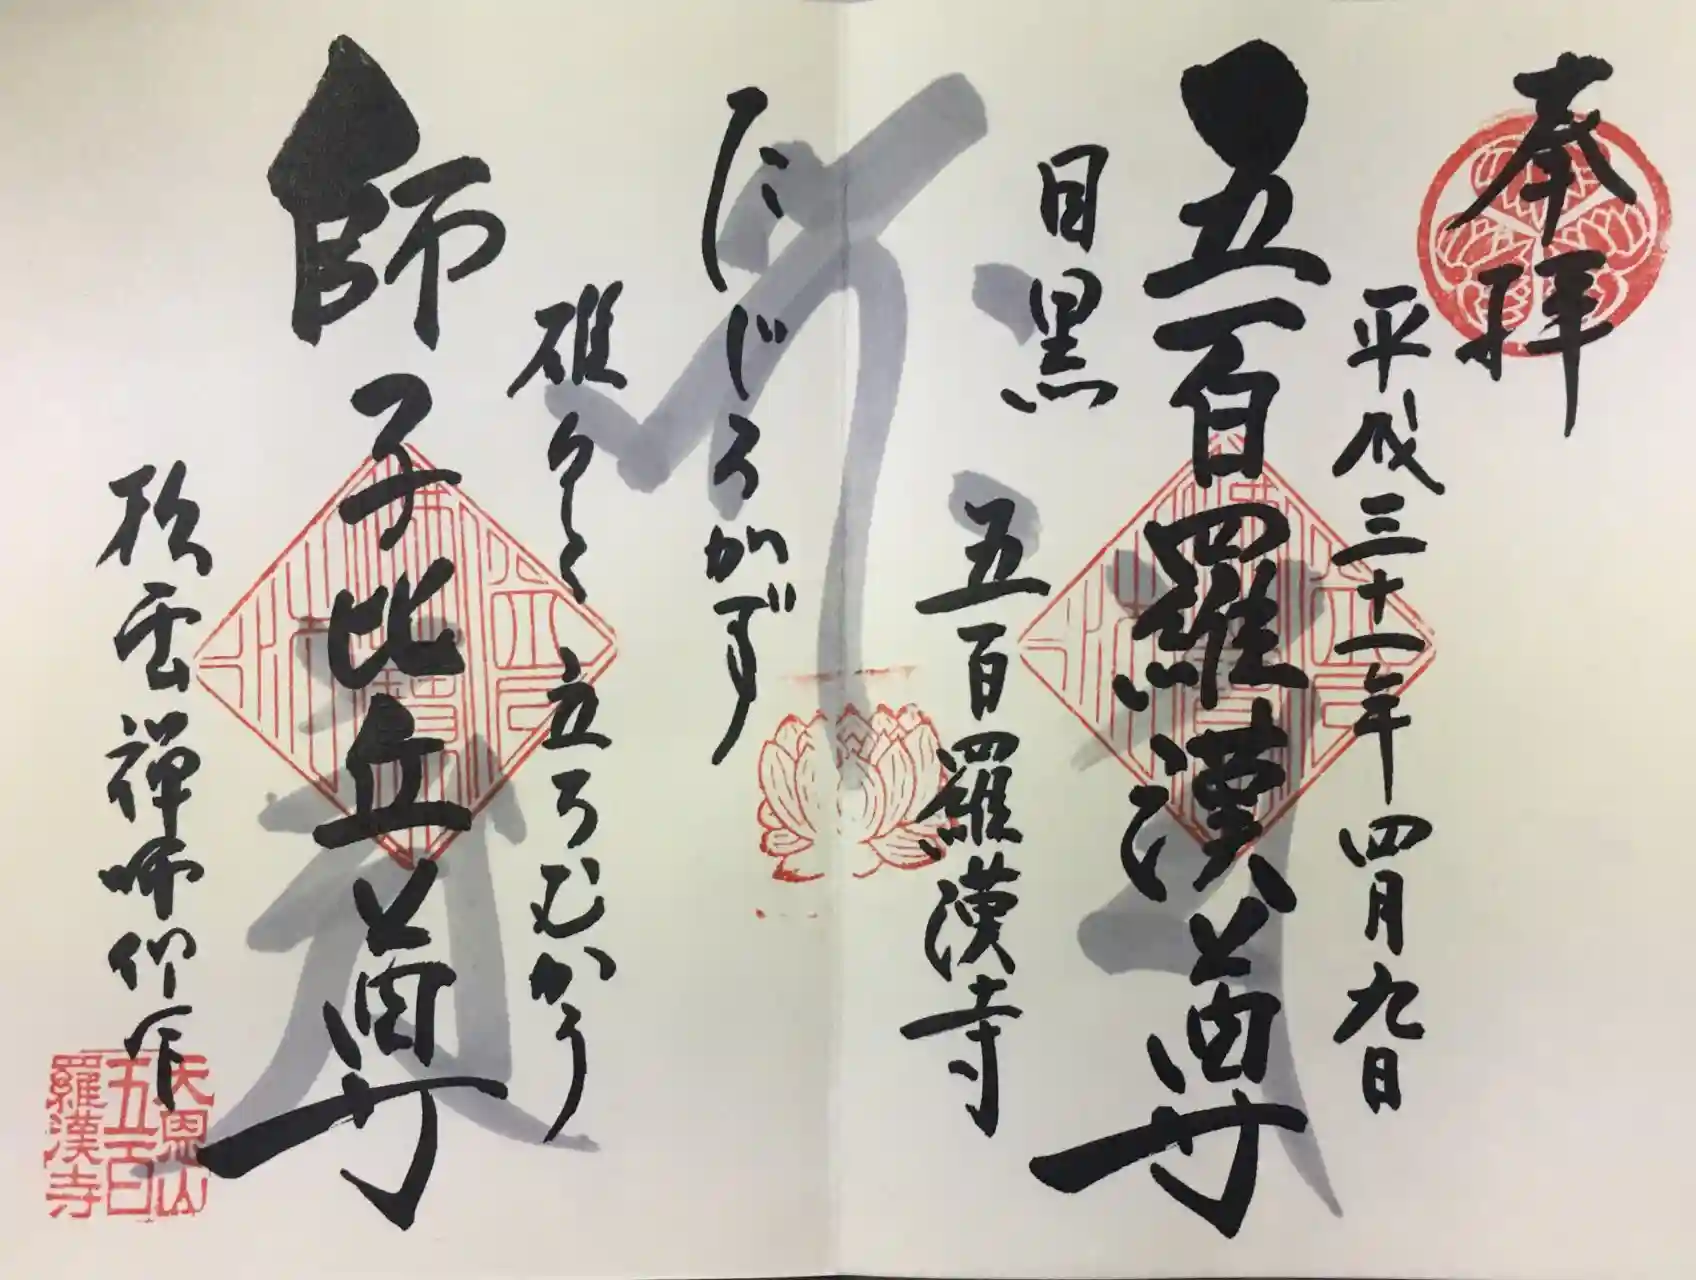 奉拝
平成三十一年四月九日
五百羅漢尊
目黒 五百羅漢寺
たじろがず
立ちむかう
師子比丘尊
松雲禅師御作
天恩山
五百
羅漢寺